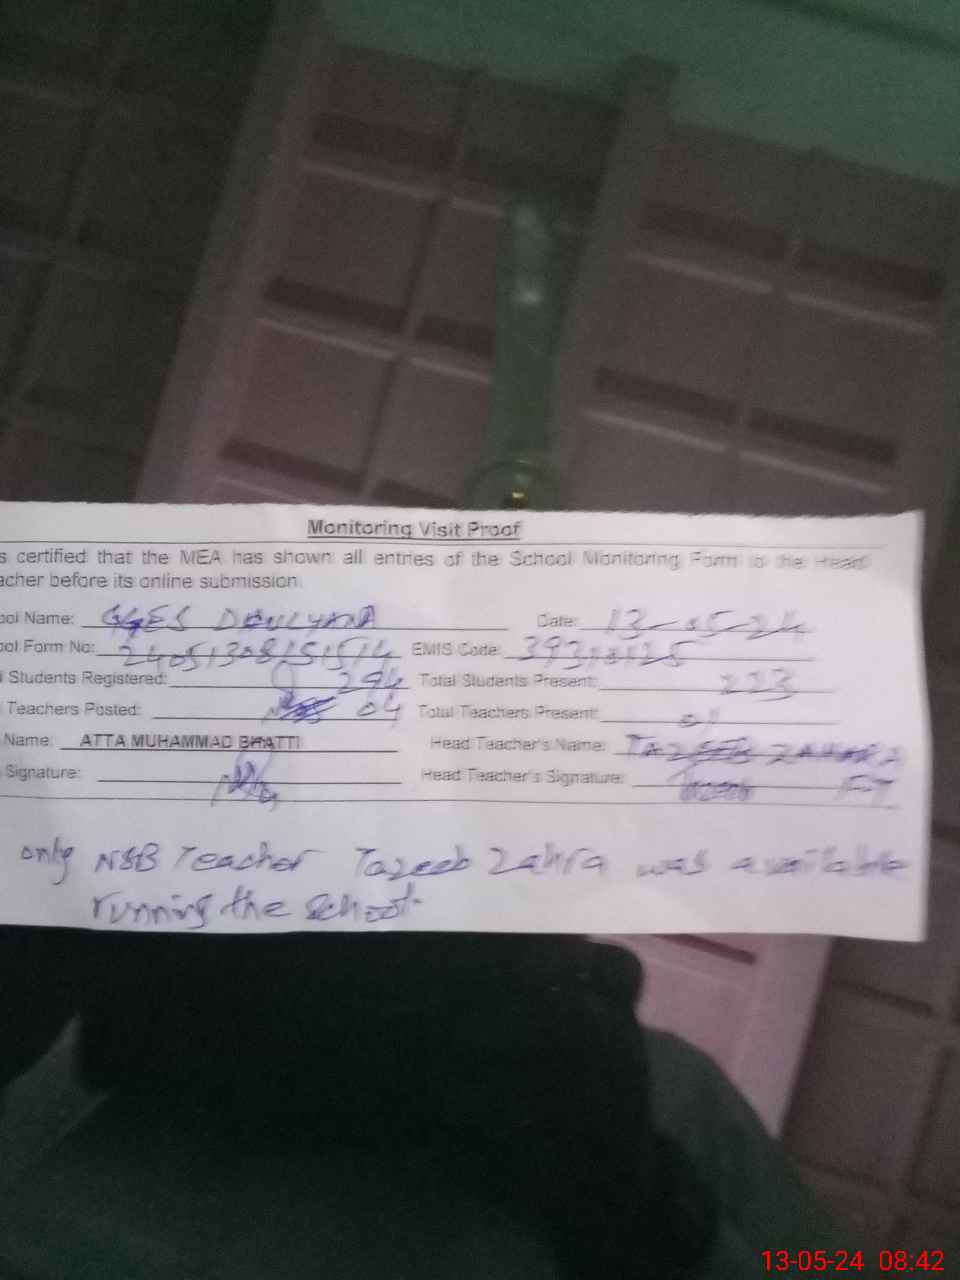 Monitoring Visit Proof
s certified that the MEA has shown all entries of the School Monitoring Form to the Head
acher before its online submission.
ool Name: GGES DAULYANA Date: 13-05-24
ool Form No: EMIS Code:
Students Registered: 294 Total Students Present: 223
Teachers Posted: 04 Total Teachers Present: 01
Name: ATTA MUHAMMAD BHATTI Head Teacher's Name: TAZEEB ZAHARA
Signature: Head Teacher's Signature:
only NSB Teacher Tazeeb Zahra was available
running the school.
13-05-24 08:42